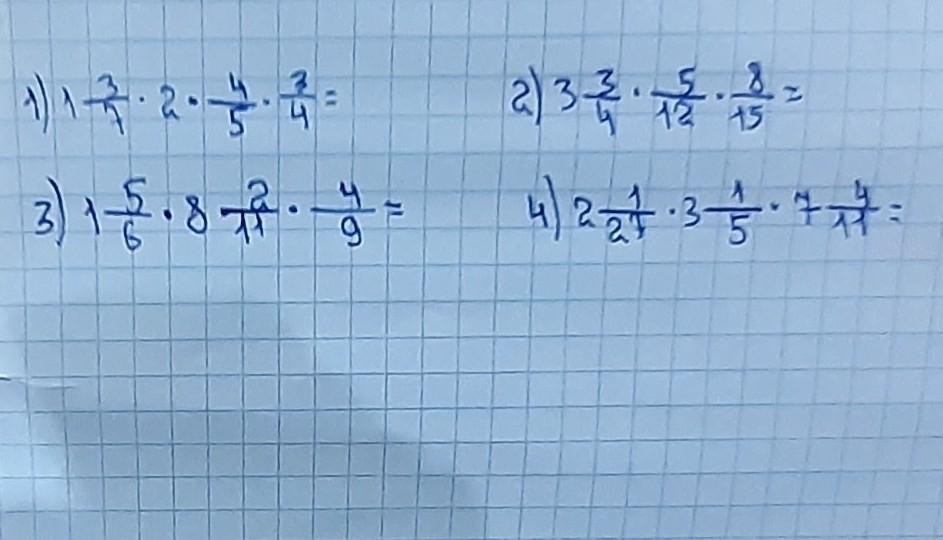 1) 1 3/7 · 2 · 4/5 · 3/4 = 2) 3 3/4 · 5/12 · 8/15 =
3) 1 5/6 · 8 2/11 · 4/9 = 4) 2 1/27 · 3 1/5 · 7 4/11 =